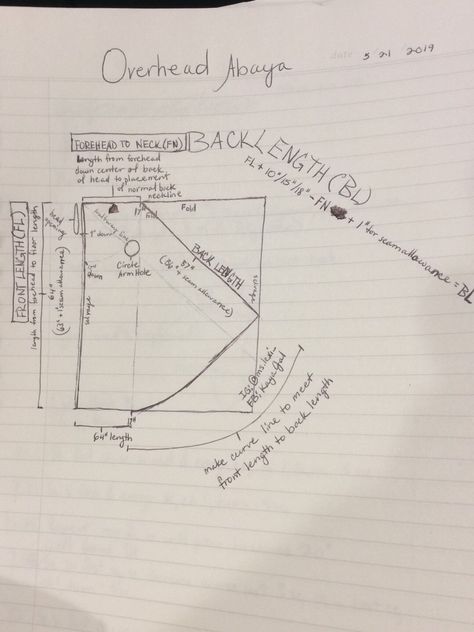 date 5 21 2019
Overhead Abaya
FOREHEAD TO NECK (FN)
length from forehead
down center of back
of head to placement
of normal back
neckline
BACK LENGTH (BL)
FL + 10"/15"/18" - FN + 1" for seam allowance = BL
FRONT LENGTH (FL)
length from forehead to floor length
64"
(63" + 1" seam allowance)
head
opening
1" down
selvage
Fold
Fold
Circle
Arm Hole
BACK LENGTH
87"
(86" + seam allowance)
selvage
64" length
IG: @ms.kedi_
make curve line to meet
front length to back length